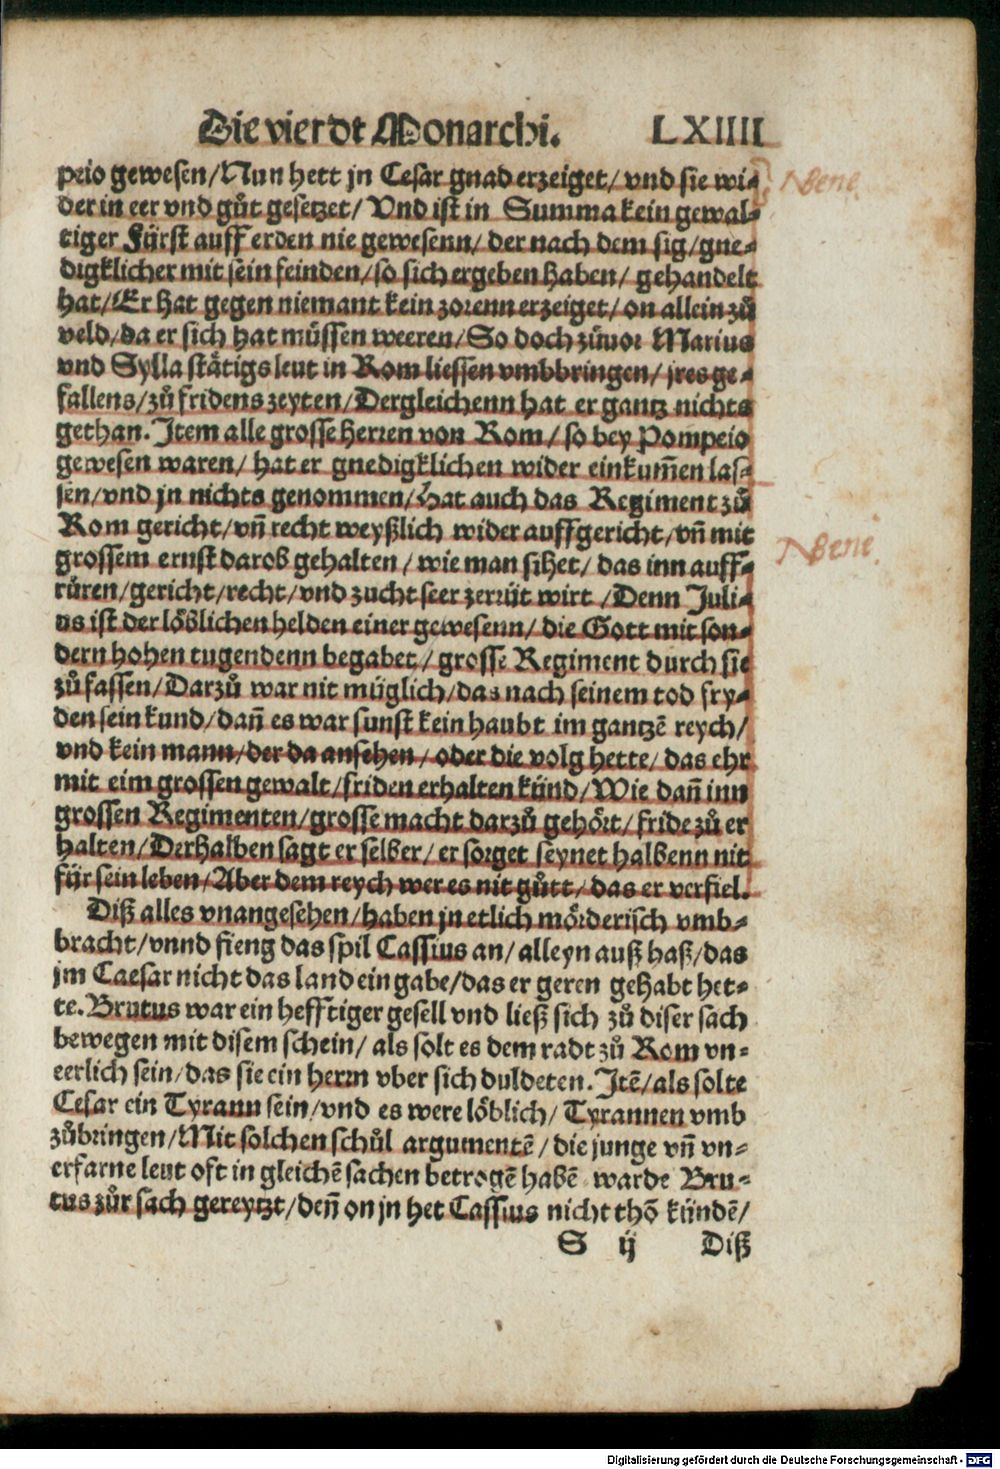 Die vierdt Monarchi. LXIIII
peio gewesen/Nun hett jn Cesar gnad erzeiget/ vnd sie wi⸗
der in eer vnd gůt gesetzet/ Vnd ist in Summa kein gewal⸗
tiger Fürst auff erden nie gewesenn/ der nach dem sig/gne⸗
digklicher mit sein feinden/so sich ergeben haben/ gehandelt
hat/Er hat gegen niemant kein zorenn erzeiget/ on allein zů
veld/da er sich hat müssen weeren/So doch zůuor Marius
vnd Sylla stätigs leut in Rom liessen vmbbringen/ jres ge⸗
fallens/zů fridens zeyten/Dergleichenn hat er gantz nichts
gethan. Item alle grosse Herren von Rom/so bey Pompeio
gewesen waren/ hat er gnedigklichen wider einkum̃en las⸗
sen/vnd jn nichts genommen/Hat auch das Regiment zů
Rom gericht/vñ recht weyßlich wider auffgericht/vñ mit
grossem ernst darob gehalten/ wie man sihet/ das inn auff⸗
růren/gericht/recht/vnd zucht seer zerrüt wirt/Denn Juli⸗
us ist der löblichen helden einer gewesenn/ die Gott mit son⸗
dern hohen tugendenn begabet/ grosse Regiment durch sie
zů fassen/Darzů war nit müglich/das nach seinem tod fry⸗
den sein kund/dañ es war sunst kein haubt im gantzẽ reych/
vnd kein mann/der da ansehen/ oder die volg hette/ das ehr
mit eim grossen gewalt/friden erhalten künd/Wie dañ inn
grossen Regimenten/grosse macht darzů gehört/ fride zů er
halten/Derhalben sagt er selber/ er sorget seynet halbenn nit
für sein leben/Aber dem reych wer es nit gůtt/ das er verfiel.
Diß alles vnangesehen/haben jn etlich mörderisch vmb⸗
bracht/vnnd fieng das spil Cassius an/ alleyn auß haß/das
jm Caesar nicht das land eingabe/das er geren gehabt het⸗
te. Brutus war ein hefftiger gesell vnd ließ sich zů diser sach
bewegen mit disem schein/ als solt es dem radt zů Rom vn⸗
eerlich sein/das sie ein herrn vber sich duldeten. Itẽ/als solte
Cesar ein Tyrann sein/vnd es were löblich/ Tyrannen vmb
zůbringen/Mit solchen schůl argumentẽ/ die junge vñ vn⸗
erfarne leut oft in gleichẽ sachen betrogẽ habẽ warde Bru⸗
tus zůr sach gereytzt/deñ on jn het Cassius nicht thõ kündẽ/
S ij Diß
NBene
NBene
Digitalisierung gefördert durch die Deutsche Forschungsgemeinschaft - DFG